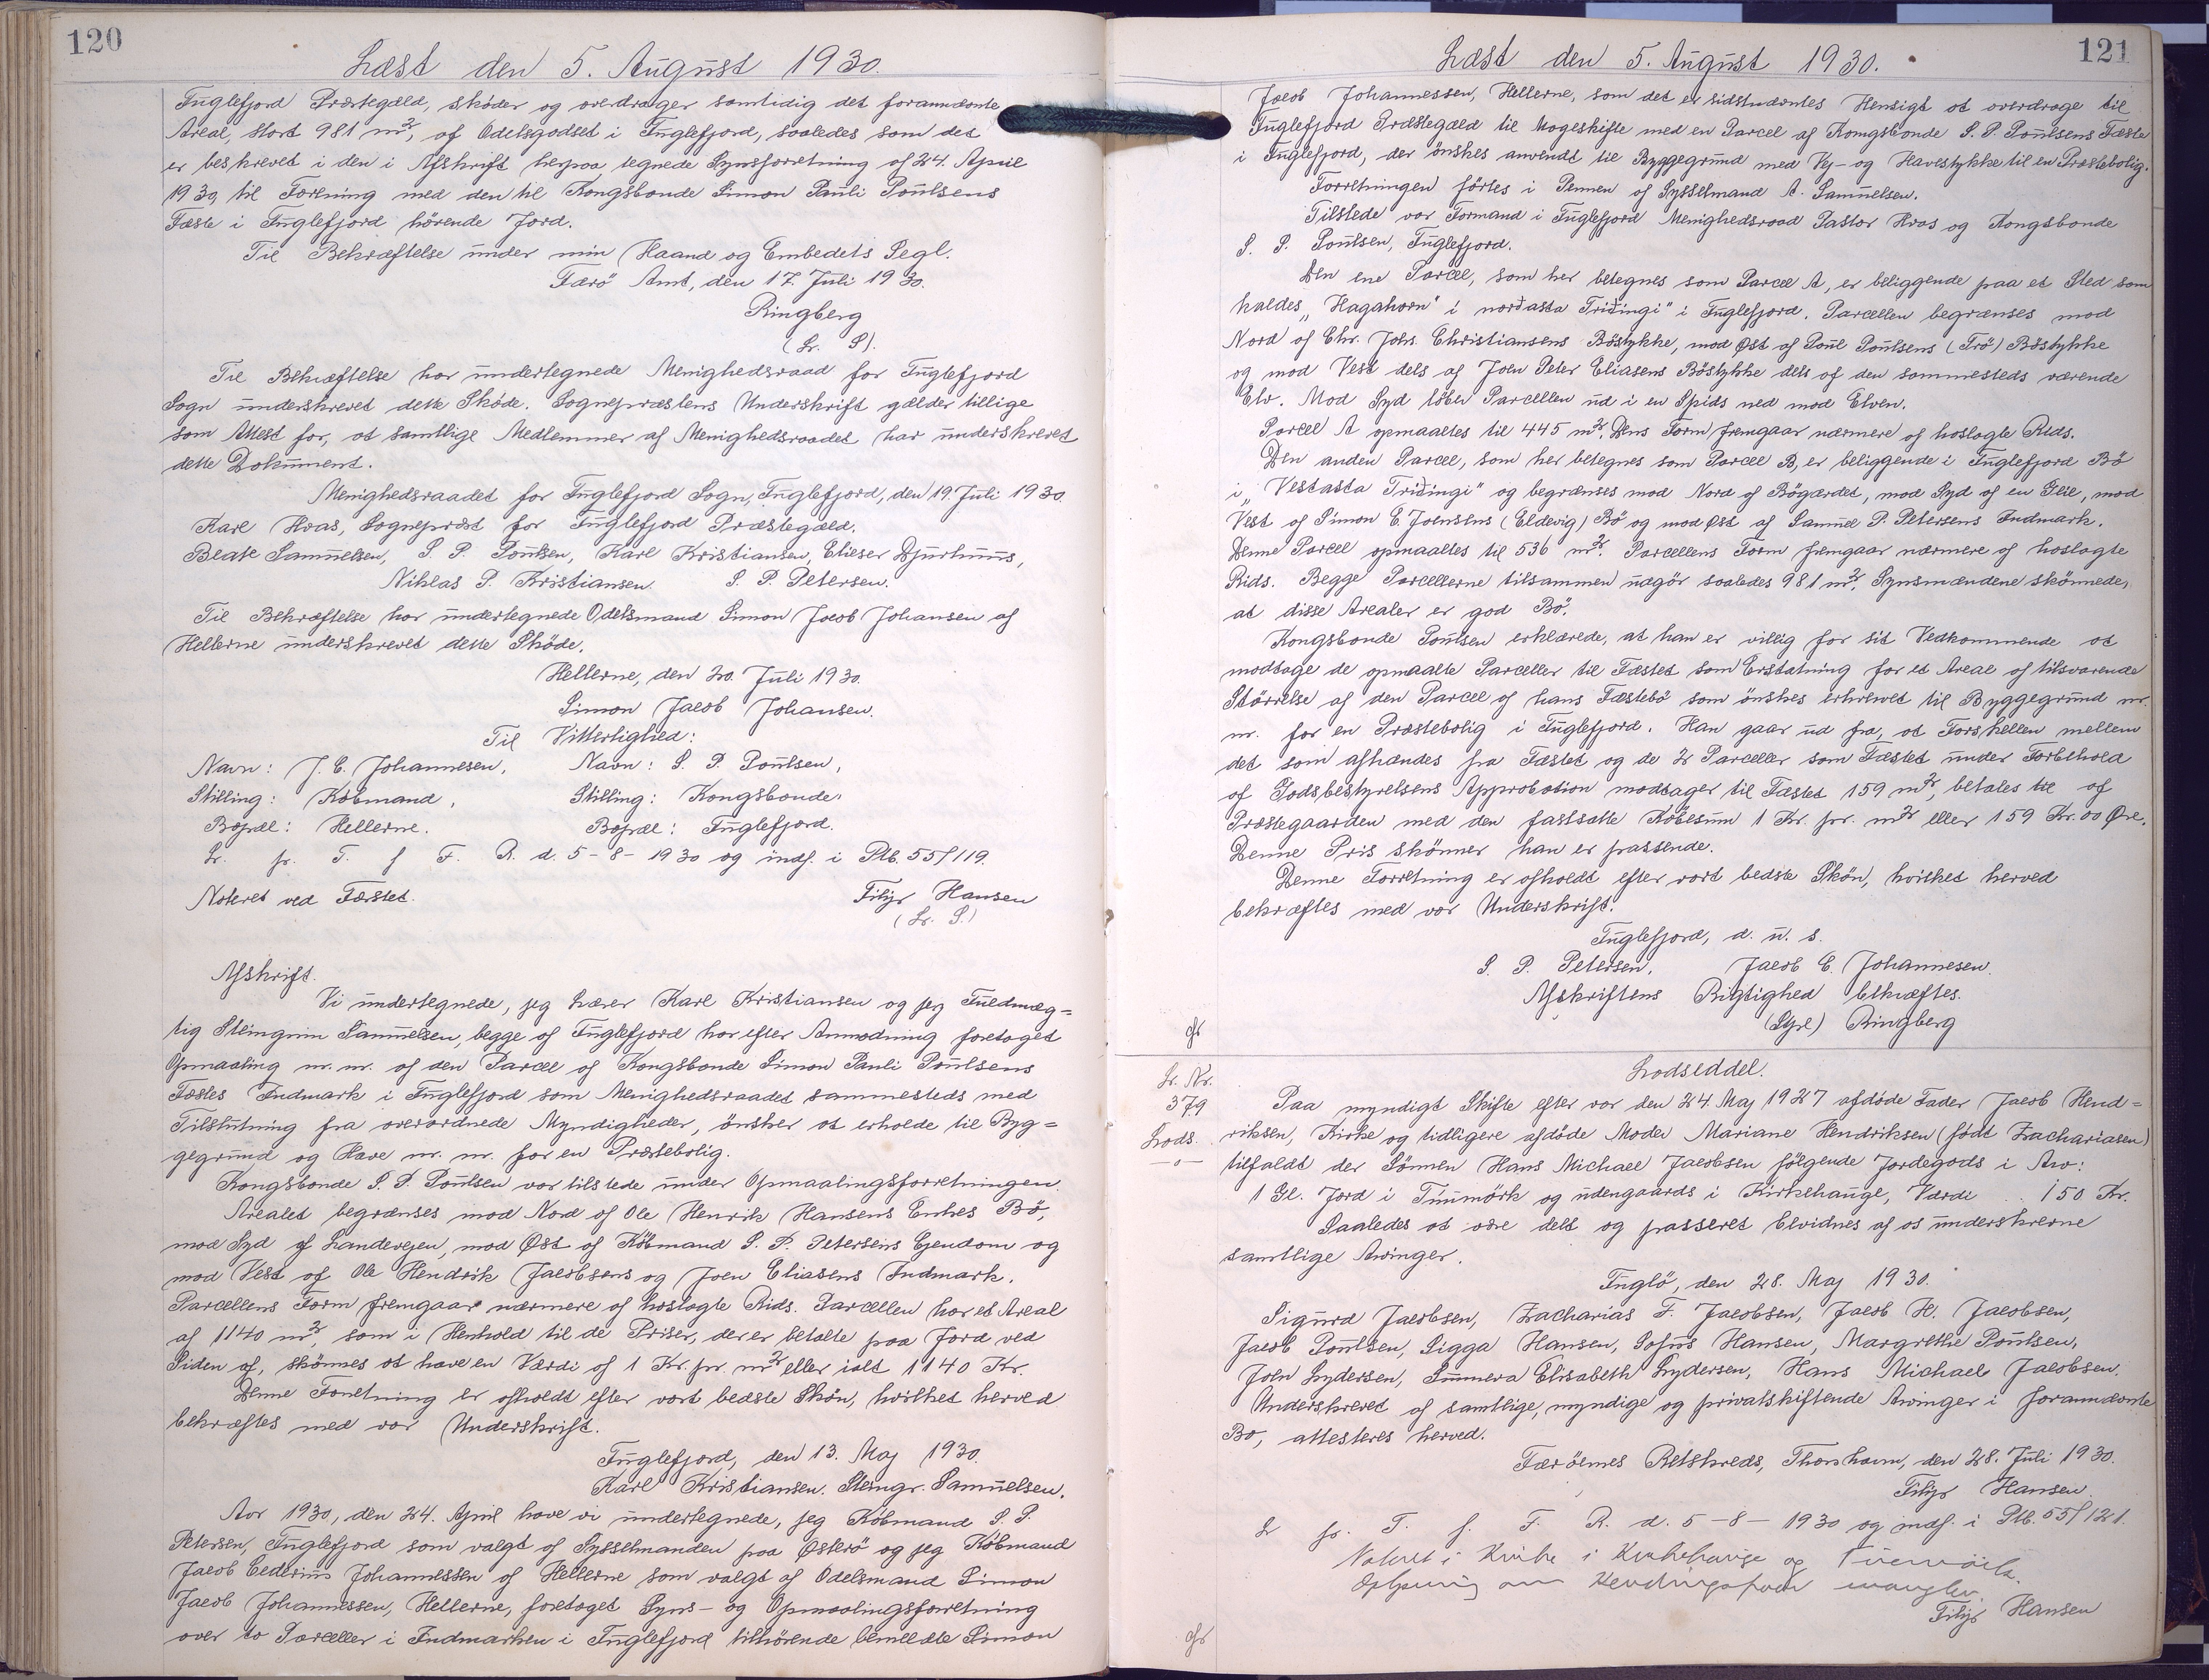 120
Læst den 5. August 1930.
Fuglefjord Præstegæld, skøder og overdrager samtidig det forannævnte
Areal, stort 981 m², af Odelsgodset i Fuglefjord, saaledes som det
er beskrevet i den i Afskrift herpaa tegnede Synsforretning af 24. April
1930, til Forening med den til Kongsbonde Simon Pauli Poulsens
Fæste i Fuglefjord hörende Jord.
Til Bekræftelse under min Haand og Embedets Segl.
Færö Amt, den 17. Juli 1930.
Ringberg
(L. S).
Til Bekræftelse har undertegnede Menighedsraad for Fuglefjord
Sogn underskrevet dette Sköde. Sognepræstens Underskrift gælder tillige
som Attest for, at samtlige Medlemmer af Menighedsraadet har underskrevet
dette Dokument.
Menighedsraadet for Fuglefjord Sogn, Fuglefjord, den 19. Juli 1930.
Karl Hvas, Sognepræst for Fuglefjord Præstegæld.
Beate Samuelsen, S. P. Poulsen, Karl Kristiansen, Elieser Djurhuus,
Niklas P. Kristiansen. S. P. Petersen.
Til Bekræftelse har undertegnede Odelsmand Simon Jacob Johansen af
Hellerne underskrevet dette Sköde.
Hellerne, den 20. Juli 1930.
Simon Jacob Johansen.
Til Vitterlighed:
Navn: J. C. Johannesen, Navn: S. P. Poulsen,
Stilling: Köbmand, Stilling: Kongsbonde,
Bopæl: Hellerne. Bopæl: Fuglefjord.
L. p. T. f F. R. d. 5-8-1930 og indf. i Ptb. 55/119.
Noteret ved Fæstet. Filip Hansen
(L. S.)
Afskrift.
Vi undertegnede, jeg Lærer Karl Kristiansen og jeg Fuldmæg=
tig Steingrim Samuelsen, begge af Fuglefjord har efter Anmodning foretaget
Opmaaling m. m. af den Parcel af Kongsbonde Simon Pauli Poulsens
Fæstes Indmark i Fuglefjord som Menighedsraadet sammesteds med
Tilslutning fra overordnede Myndigheder, ønsker at erholde til Byg=
gegrund og Have m. m. for en Præstebolig.
Kongsbonde S. P. Poulsen var tilstede under Opmaalingsforretningen.
Arealet begrænses mod Nord af Ole Henrik Hansens Enkes Bö,
mod Syd af Landevejen, mod Øst af Köbmand S. P. Petersens Ejendom og
mod Vest af Ole Hendrik Jacobsens og Joen Eliasens Indmark.
Parcellens Form fremgaar nærmere af hoslagte Rids. Parcellen har et Areal
af 1140 m², som i Henhold til de Priser, der er betalte paa Jord ved
Siden af, skönnes at have en Værdi af 1 Kr. pr. m² eller ialt 1140 Kr.
Denne Forretning er afholdt efter vort bedste Skön, hvilket herved
bekræftes med vor Underskrift.
Fuglefjord, den 13. Maj 1930.
Karl Kristiansen. Steingr. Samuelsen.
Aar 1930, den 24. April have vi undertegnede, jeg Købmand S. P.
Petersen, Fuglefjord som valgt af Sysselmanden paa Østerö og jeg Købmand
Jacob Johannessen af Hellerne som valgt af Odelsmand Simon
Jacob Johannessen, Hellerne, foretaget Syns- og Opmaalingsforretning
over to Parceller i Indmarken i Fuglefjord tilhörende bemeldte Simon
121
Læst den 5. August 1930.
Jacob Johannessen, Hellerne, som det er sidstnævntes Hensigt at overdrage til
Fuglefjord Præstegæld til Mageskifte med en Parcel af Kongsbonde S. P. Poulsens Fæste
i Fuglefjord, der ønskes anvendt til Byggegrund med Vej- og Havestykke til en Præstebolig.
Forretningen förtes i Pennen af Sysselmand A. Samuelsen.
Tilstede var Formand i Fuglefjord Menighedsraad Pastor Hvas og Kongsbonde
S. P. Poulsen, Fuglefjord.
Den ene Parcel, som her betegnes som Parcel A, er beliggende paa et Sted som
kaldes „Hagahorn" i norðasta Triðingi" i Fuglefjord. Parcellen begrænses mod
Nord af Chr. Johs. Christiansens Böstykke, mod Øst af Poul Poulsens (Trö) Böstykke
og mod Vest dels af Joen Peter Eliasens Böstykke dels af den sammesteds værende
Elv. Mod Syd löber Parcellen ud i en Spids ned mod Elven.
Parcel A opmaaltes til 445 m². Dens Form fremgaar nærmere af hoslagte Rids.
Den anden Parcel, som her betegnes som Parcel B, er beliggende i Fuglefjord Bö
i „Vestasta Triðingi" og begrænses mod Nord af Bögærdet, mod Syd af en Geil, mod
Vest af Simon E. Joensens (Eldevig) Bö og mod Øst af Samuel P. Petersens Indmark.
Denne Parcel opmaaltes til 536 m². Parcellens Form fremgaar nærmere af hoslagte
Rids. Begge Parcellerne tilsammen udgör saaledes 981 m². Synsmændene skönnede,
at disse Arealer er god Bö.
Kongsbonde Poulsen erklærede, at han er villig for sit Vedkommende at
modtage de opmaalte Parceller til Fæstet som Erstatning for et Areal af tilsvarende
Störrelse af den Parcel af hans Fæstebö som önskes erhvervet til Byggegrund m.
m. for en Præstebolig i Fuglefjord. Han gaar ud fra, at Forskellen mellem
det som afhændes fra Fæstet og de 2 Parceller som Fæstet under Forbehold
af Godsbestyrelsens Approbation modtager til Fæstet 159 m², betales til af
Præstegaarden med den fastsatte Köbesum 1 Kr. pr. m² eller 159 Kr. 00 Øre.
Denne Pris skönner han er passende.
Denne Forretning er afholdt efter vort bedste Skön, hvilket herved
bekræftes med vor Underskrift.
Fuglefjord, d. u. s.
S. P. Petersen. Jacob C. Johannesen.
Afskriftens Rigtighed bekræftes.
(Sgd) Ringberg
Lodseddel.
L. Nr.
379
Lods.
—o—
Paa myndigt Skifte efter vor den 24. Maj 1927 afdöde Fader Jacob Hend=
riksen, Kirke og tidligere afdöde Moder Mariane Hendriksen (födt Zachariasen)
tilfaldt der Sönnen Hans Michael Jacobsen fölgende Jordegods i Arv:
1 Gl. Jord i Tinnmörk og udengaards i Kirkehauge, Værdi . . 150 Kr.
Saaledes at være delt og passeret bevidnes af os underskrevne
samtlige Arvinger.
Fuglö, den 28. Maj 1930.
Sigurd Jacobsen, Zacharias F. Jacobsen, Jacob H. Jacobsen,
Jacob Poulsen, Sigga Hansen, Sofus Hansen, Margrethe Poulsen,
Joen Lydersen, Summera Elisabeth Lydersen, Hans Michael Jacobsen.
Underskrevet af samtlige, myndige og privatskiftende Arvinger i forannævnte
Bo, attesteres herved.
Færöernes Retskreds, Thorshavn, den 28. Juli 1930.
Filip Hansen.
L p. T. f. F. R. d. 5-8-1930 og indf. i Ptb. 55/121.
Noteret i Kirke i Kirkehauge og
Oplysning om mangler.
Filip Hansen